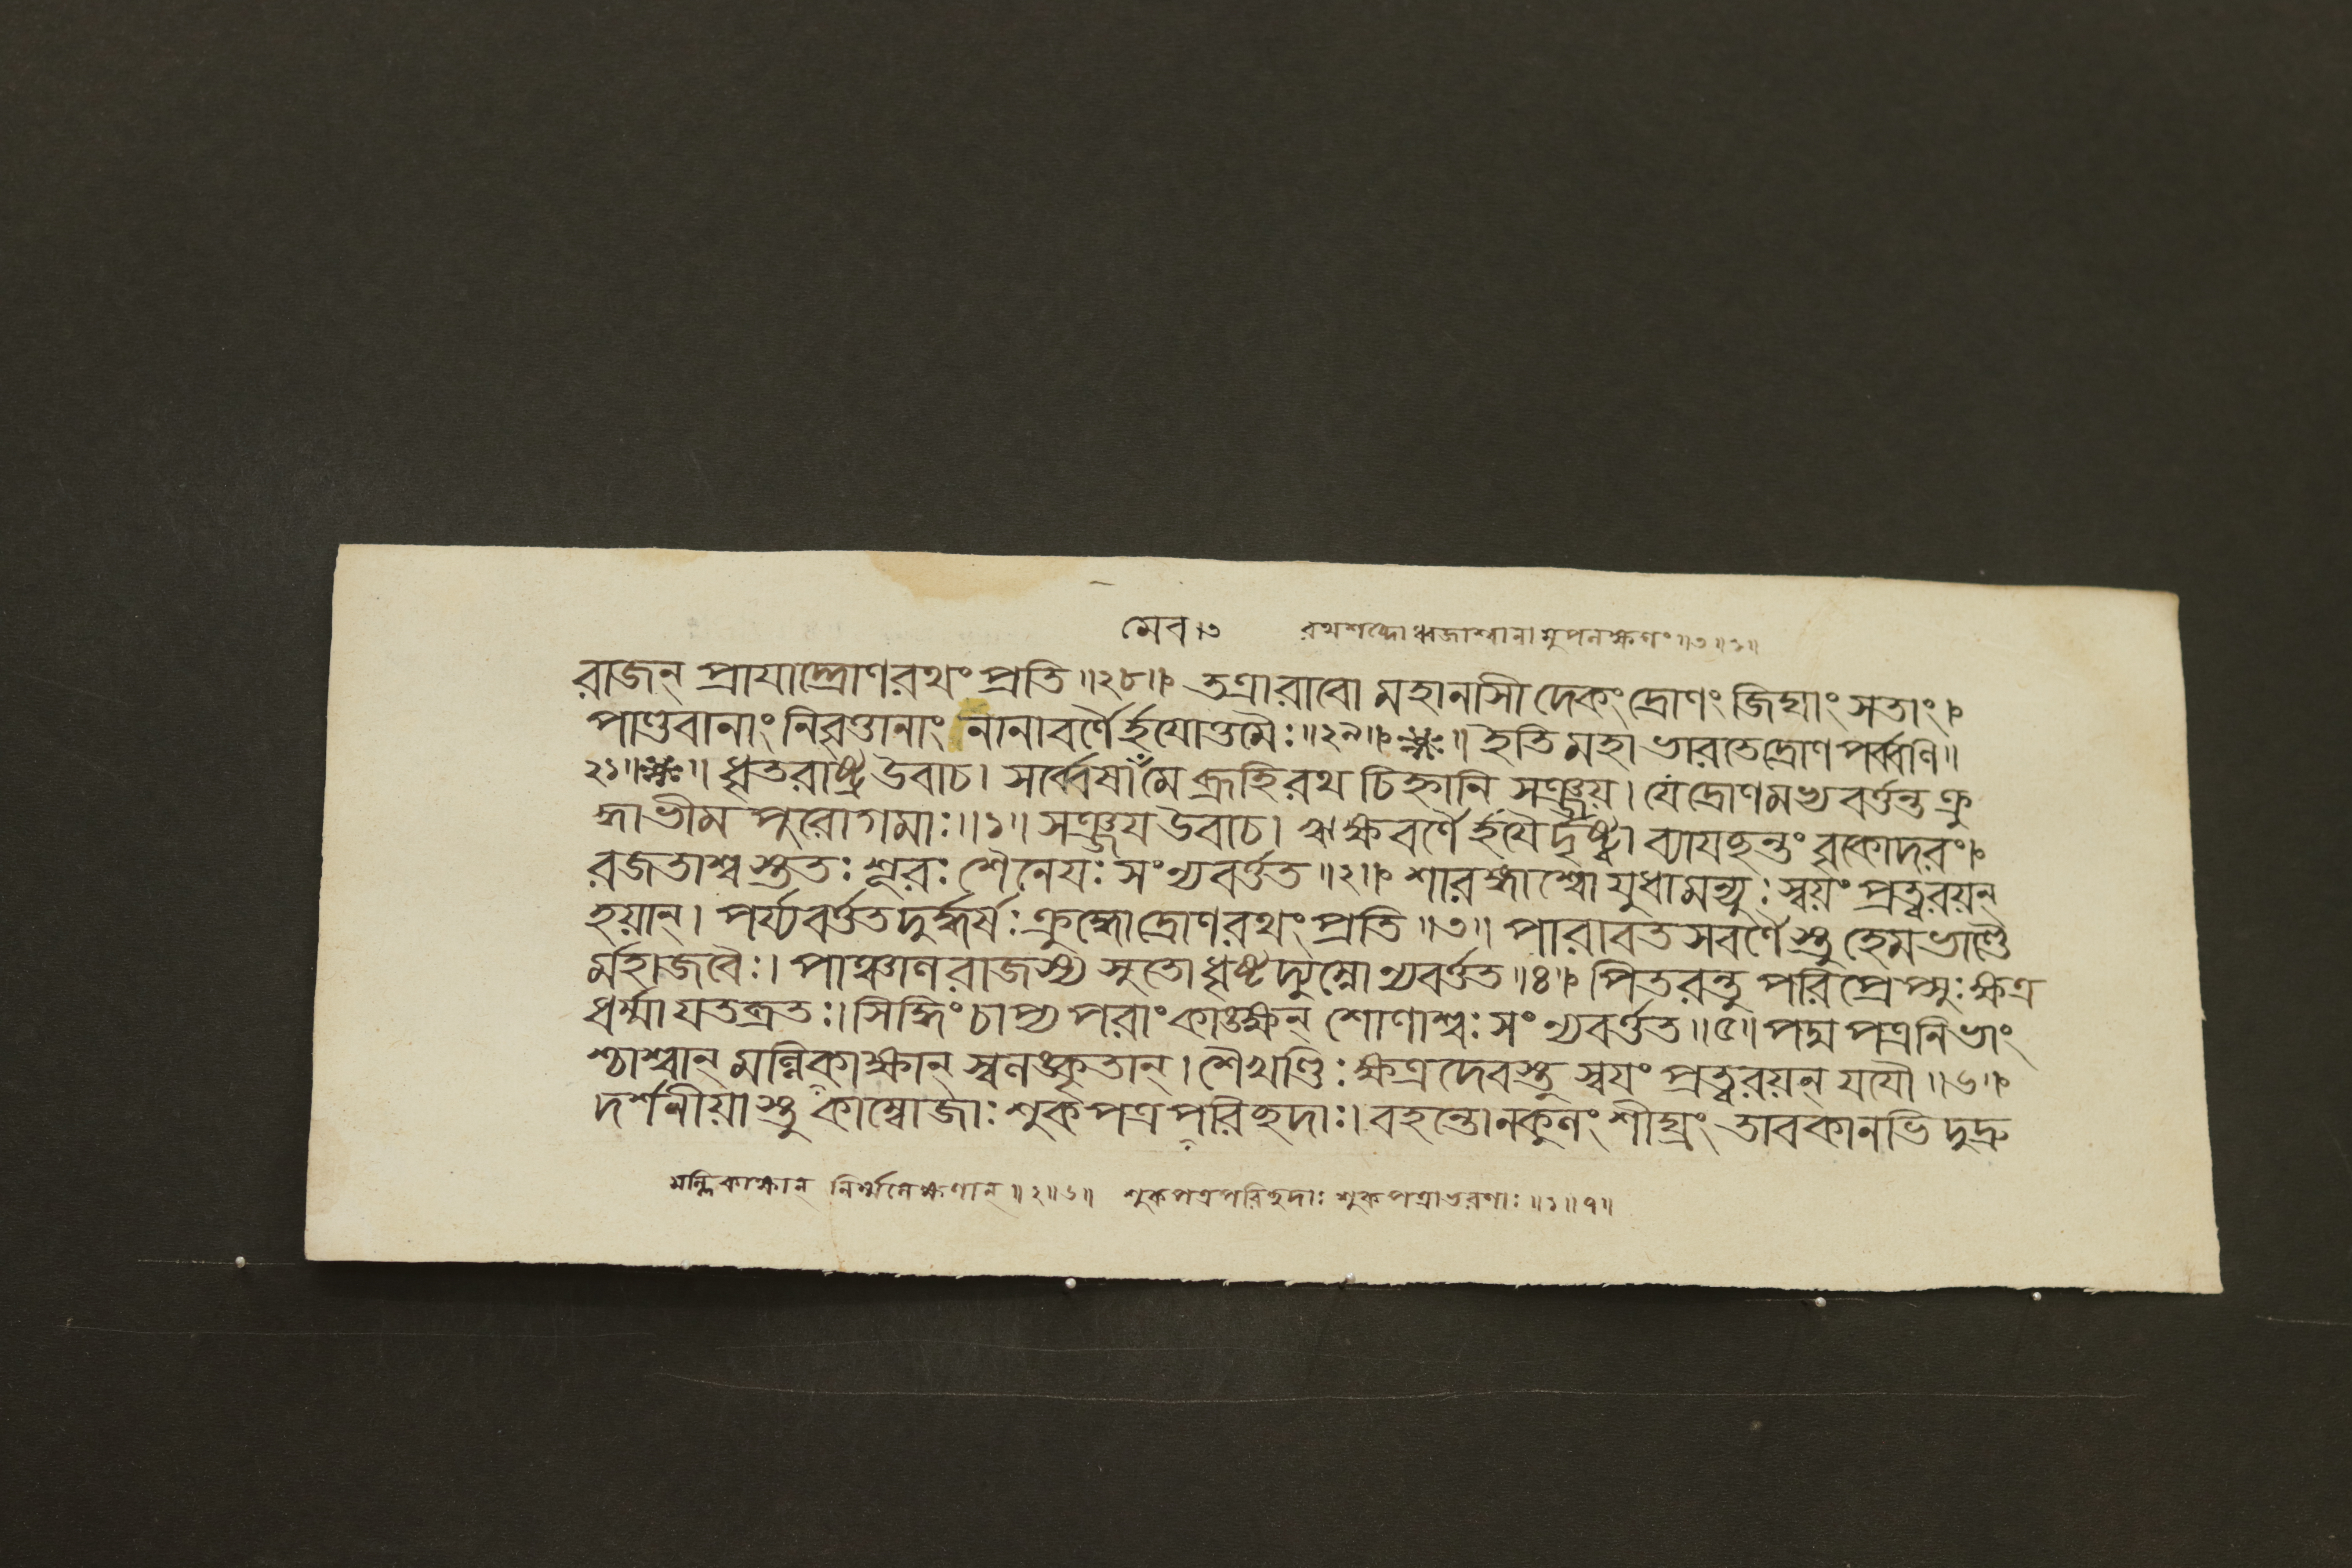 মেব ৩ রথশব্দো ধ্বজাশ্বানামুপলক্ষণং ॥৩॥১॥
রাজন্ প্রাযাদ্দ্রোণরথং প্রতি ॥২৮॥ তত্রারাবো মহানাসীদেকং দ্রোণং জিঘাংসতাং।
পাণ্ডবানাং নিবৃত্তানাং নানাবর্ণৈর্হযোত্তমৈঃ ॥২৯॥ ইতি মহাভারতে দ্রোণপর্ব্বণি ॥
২১॥ ধৃতরাষ্ট্র উবাচ। সর্ব্বেষাং মে ব্রূহি রথচিহ্নানি সঞ্জয়। যে দ্রোণমভ্যবর্ত্তন্ত ক্রু
দ্ধা ভীমপুরোগমাঃ ॥১॥ সঞ্জয উবাচ। ঋক্ষবর্ণৈর্হযৈর্দৃষ্ট্বা ব্যাযচ্ছন্তং বৃকোদরং।
রজতাশ্বস্ততঃ শূরঃ শৈনেযঃ সংন্যবর্ত্তত ॥২॥ শারঙ্গাশ্বো যুধামন্যুঃ স্বয়ং প্রত্বরয়ন্
হয়ান্। পর্য্যবর্ত্তত দুর্দ্ধর্ষঃ ক্রুদ্ধো দ্রোণরথং প্রতি ॥৩॥ পারাবতসবর্ণৈস্তু হেমভাণ্ডৈ
র্মহাজবৈঃ। পাঞ্চালরাজস্য সুতো ধৃষ্টদ্যুম্নো ন্যবর্ত্তত ॥৪॥ পিতরন্তু পরিপ্রেপ্সুঃ ক্ষত্র
ধর্ম্মা যতব্রতঃ। সিদ্ধিং চাপ্য পরাং কাঙ্ক্ষন্ শোণাশ্বঃ সংন্যবর্ত্তত ॥৫॥ পদ্মপত্রনিভাং
শ্চাশ্বান্ মল্লিকাক্ষান্ স্বলঙ্কৃতান্। শৈখণ্ডিঃ ক্ষত্রদেবস্তু স্বযং প্রত্বরয়ন্ যযৌ ॥৬॥
দর্শনীয়াস্তু কাম্বোজাঃ শুকপত্রপরিচ্ছদাঃ। বহন্তো নকুলং শীঘ্রং তাবকানভিদুদ্রু
মল্লিকাক্ষান্ নির্ম্মলেক্ষণান্ ॥২॥৬॥ শুকপত্রপরিচ্ছদাঃ শুকপত্রাভরণাঃ ॥১॥৭॥